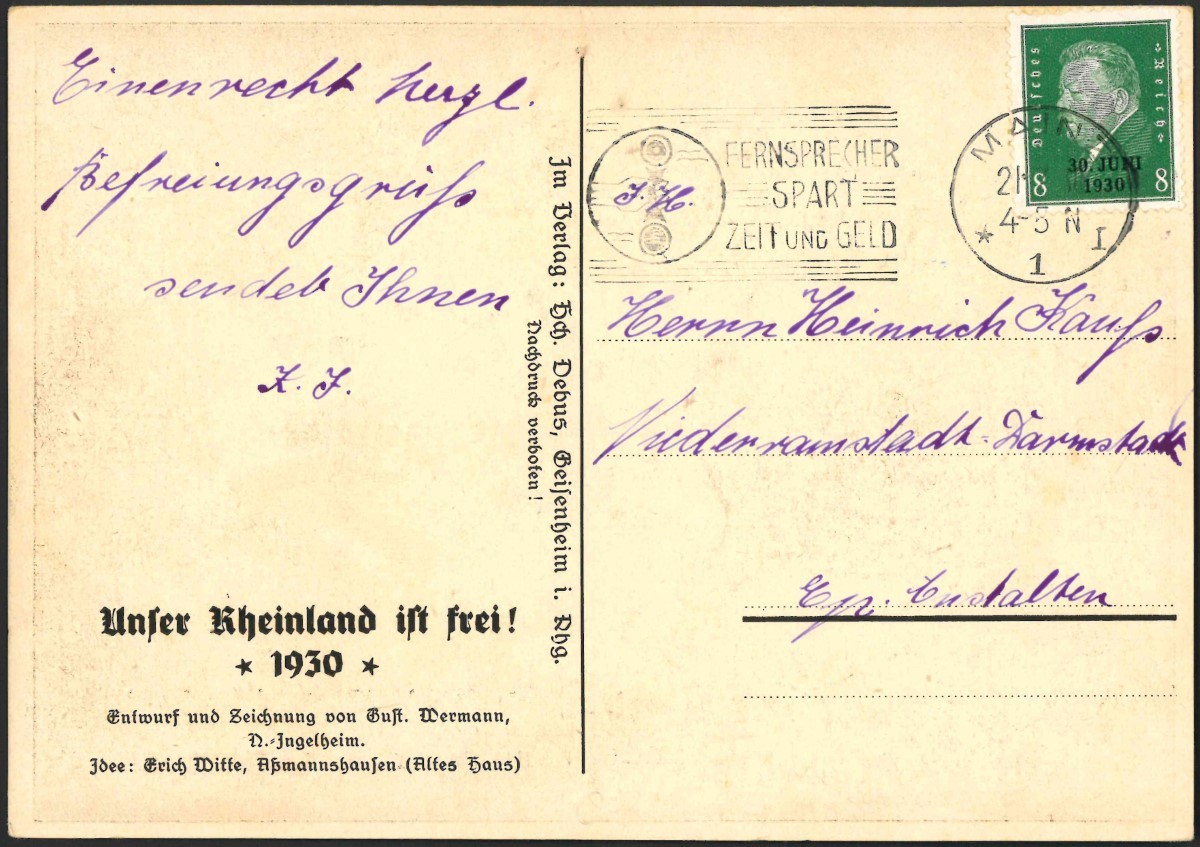 Einenrecht herzl.
Befreiungsgruß
sendet Ihnen
Unser Rheinland ist frei!
* 1930 *
Entwurf und Zeichnung von Gust. Wermann,
N.-Ingelheim.
Idee: Erich Witte, Aßmannshausen (Altes Haus)
Im Verlag: Hch. Debus, Geisenheim i. Rhg.
Nachdruck verboten!
FERNSPRECHER
SPART
ZEIT UND GELD
MAINZ
4-5 N
* 1 I
Deutsches Reich
30. JUNI
1930
8 8
Herrn Heinrich Kauß
Niederramstadt-Darmstadt
Anstalten